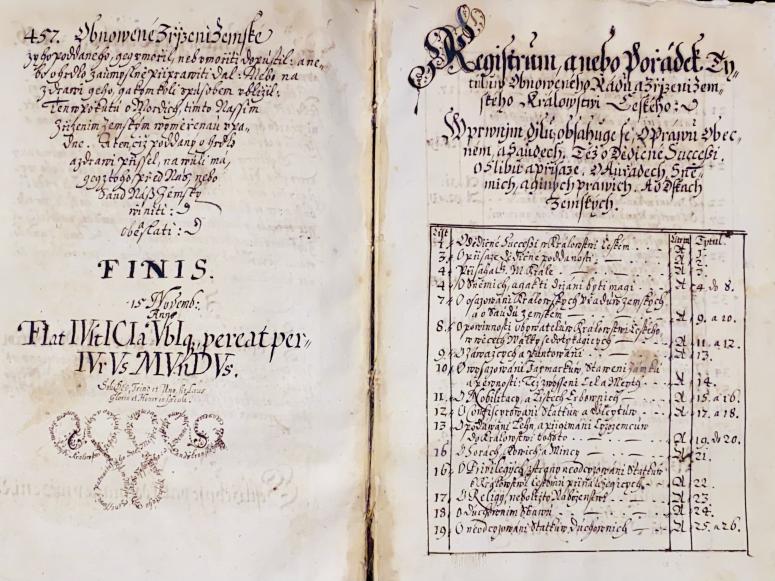 457. Obnowené Zřjzenj Zemské
zyho poddaného, geg vmořil, neb vmořiti dopustil: ane-
bo o hrdlo zaúmyslně připrawiti dal: Anebo na
zdrawj geho, gakýmkoli způsobem vbljžil:
Ten w pokutu o Mordjch, tjmto Nassjm
Zřjzenjm zemským woměřenau vpa-
dne. A ten cizý poddaný o hrdlo
a zdrawj přissel, na wůli má
geg z toho, před Nás, nebo
Saud Náss Zemský
winiti:
obeslati:
FINIS.
15 Novemb:
Anno
FIat IVstICIa VbIq, pereat per-
IVrVs MVnDVs.
Soli Deo, Trino et Uno, sit Laus
Gloria et Honor in sæcula.
Registrum, a nebo Pořádek Ty-
tulůw Obnoweného Řádu a Zřjzenj Zem-
ského Králowstwj Českého:
W prwnjm djlu, obsahuge se, O Práwu Obec-
ném, a Saudech. Též o Dědičné Successi.
O Slibu a přjsaze. O Auřadech, Sně-
mjch, a giných práwjch. A o Dskách
Zemských.
List Litera Tytul.
1. O Dědičné Successi w Králowstwj Českém A 1.
3. O přjsaze dědičné poddanosti A 2.
4. Přjsaha k. M. Krále A 3.
4. O Sněmjch, a gak ti držáni byti magj A 4. do 8.
7. O osazowánj Králowských Vřadůw zemských
a o Saudu zemském A 9. a 10.
8. O powinnosti obywatelůw Králowstwj Českého,
w wěcech Wálky se dotýkagjcých A 11. a 12.
9. O Záwazcých a Puntowánj A 13.
10. O wysazowánj Jarmarkůw, Stawenj zámků
a pewnostj: Též wyssenj Cel a Meyta A 14.
11. O Nobilitacý, a Listech Erbownjch A 15. a 16.
12. O Confisscyrowánj Stattůw, a Kšseptůw A 17. a 18.
13. O podáwánj Lehn, a přigjmánj Cyzozemcůw
do Králowstwj tohoto A 19. do 20.
16. O Horách, Kowjch a Mincy A 21.
16. O Privilegijch, strany neodcyzowánj Stattůw
k Králowstwj Českému přjnáležegjcých A 22.
17. O Religij, neboližto Náboženstwj A 23.
18. O Duchownjm Stawu A 24.
19. O neodcyzowánj Stattůw, Duchownjch A 25. a 26.